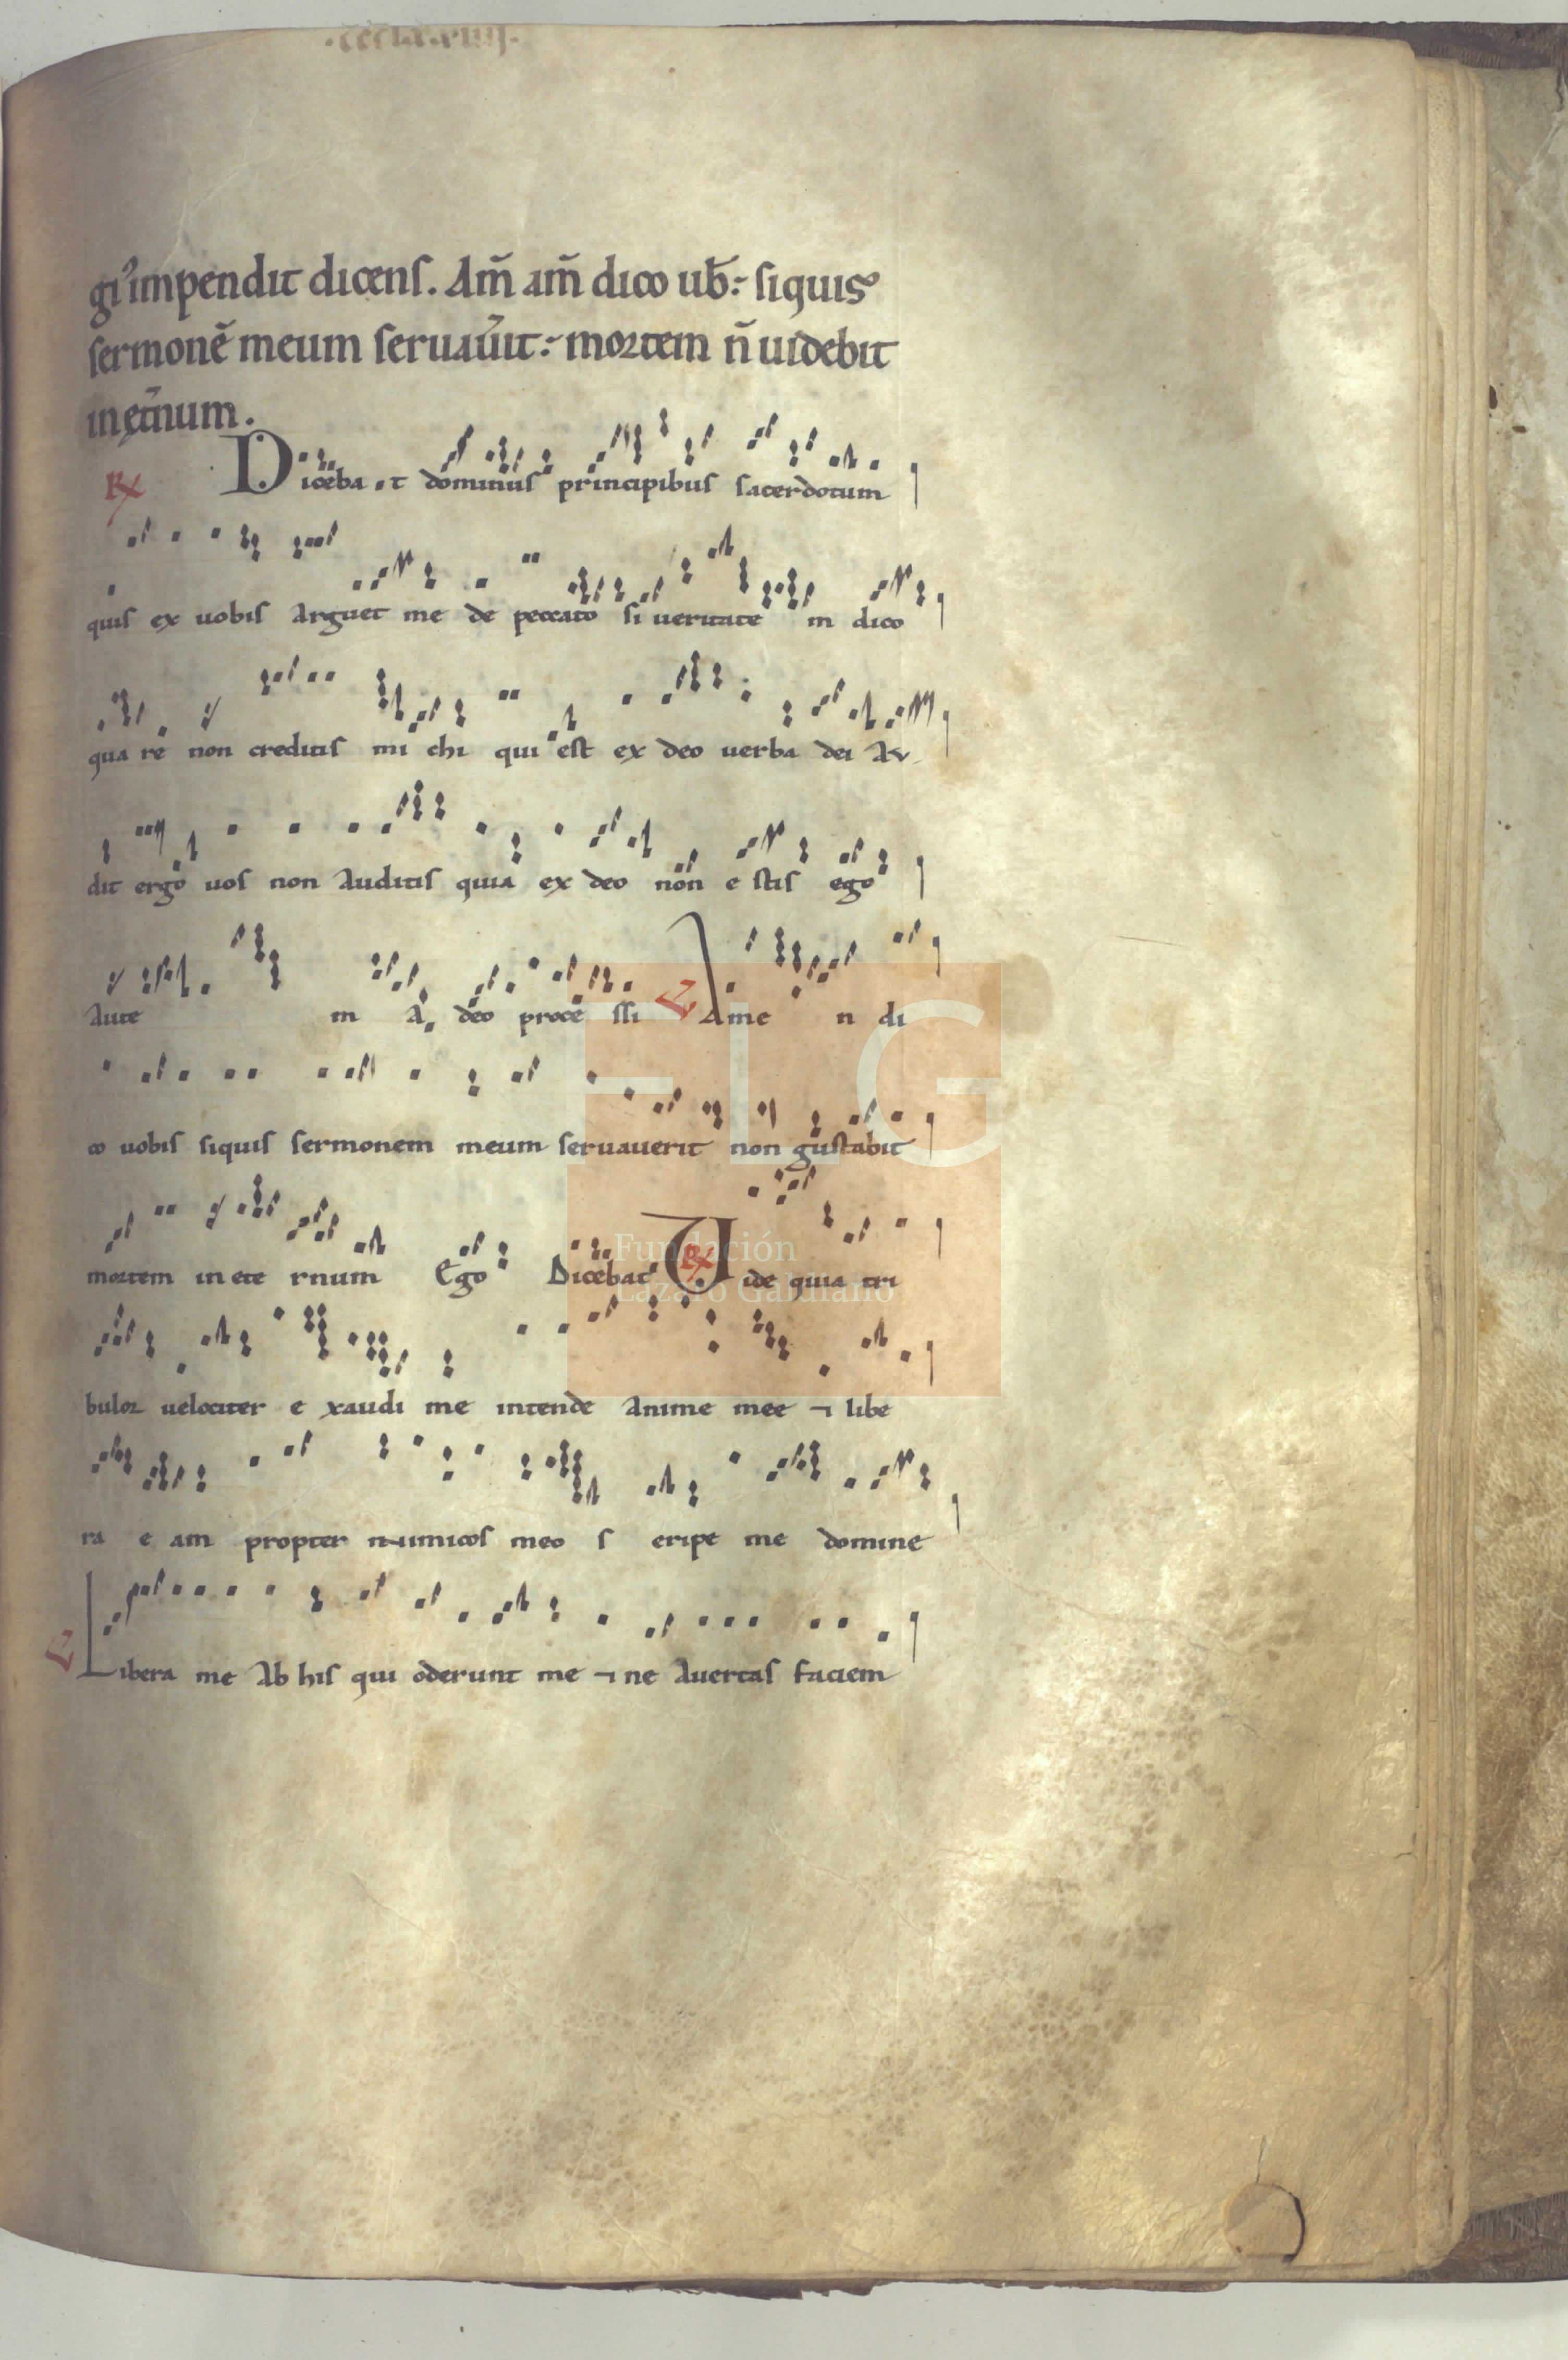 .cccLx.viiii.
gi᷒ impendit dicens. Am̃ am̃ dico ub̃: siquis
sermonẽ meum seruau̾it: mortem ñ uidebit
in ęt̾num.
R̸ Diceba t dominus principibus sacerdotum
quis ex uobis arguet me de peccato si ueritate m dico
qua re non creditis mi chi qui est ex deo uerba dei au
dit ergo uos non auditis quia ex deo non e stis ego
aute m a deo proce ssi V̸ Ame n di
co uobis siquis sermonem meum seruauerit non gustabit
mortem in ete rnum Ego Dicebat R̸ Uide quia tri
bulor uelociter e xaudi me intende anime mee ⁊ libe
ra e am propter inimicos meo s eripe me domine
V̸ Libera me ab his qui oderunt me ⁊ ne auertas faciem
FLG
Fundación
Lázaro Galdiano